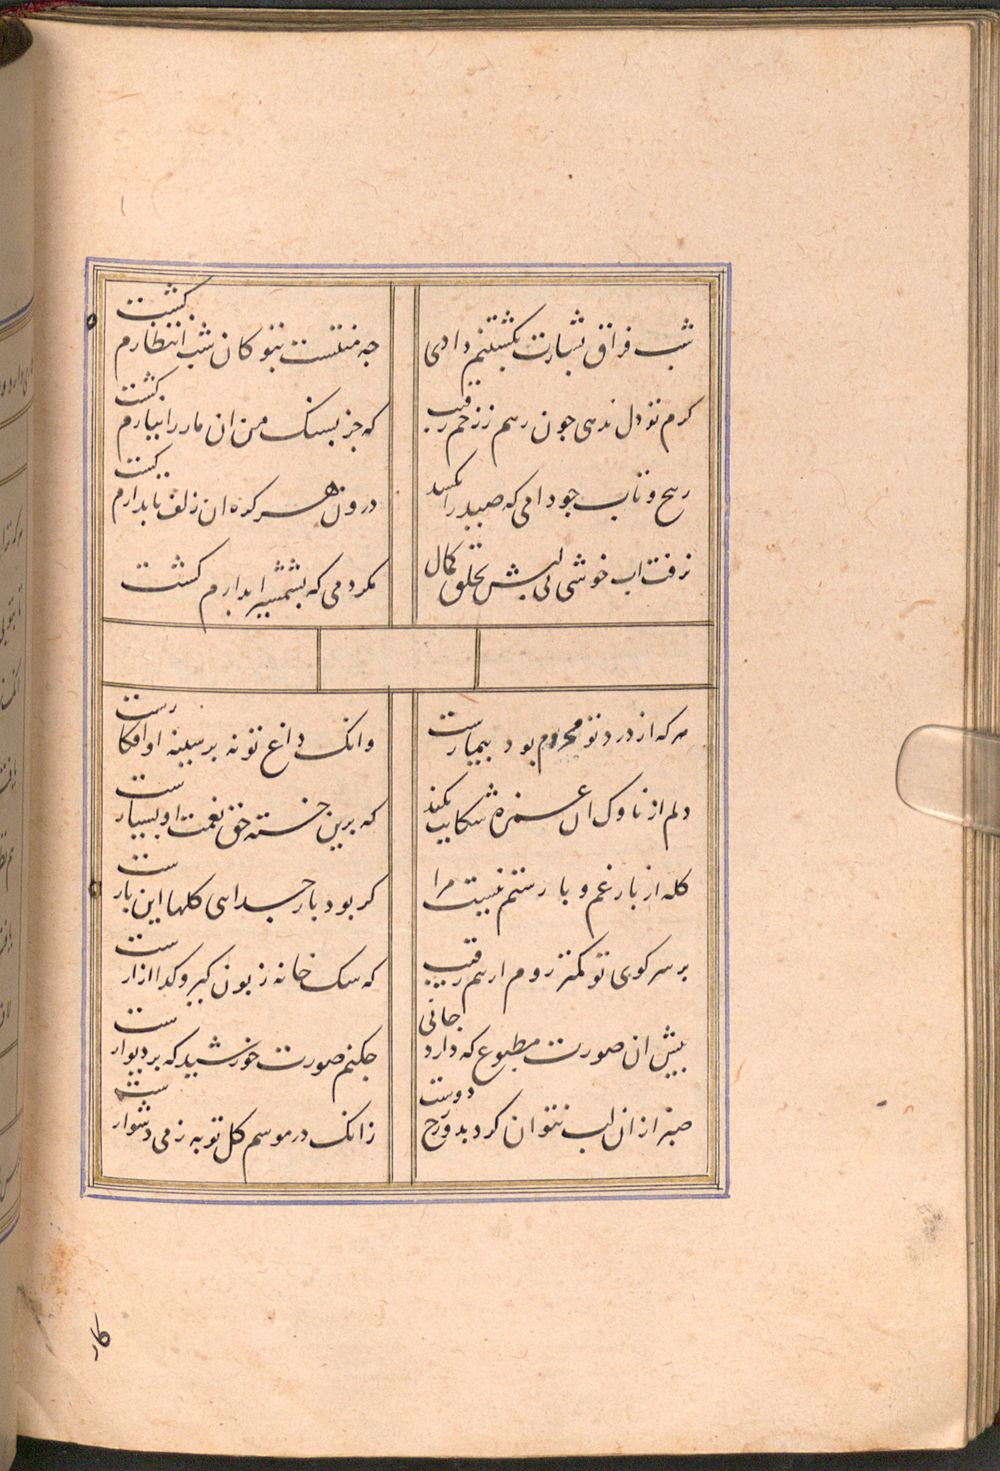 شب فراق بشارت بکشتنم دادی
جه منتست بتو کان شب انتظارم کشت
کرم تو دل ندهی جون رهم ززخم رقیب
که جز بسنک من ان مار را نیارم کشت
بیج و تاب جو دامی که صید را بکشد
درون هر کره ان زلف تابدارم کشت
نرفت اب خوشی بی لبش بحلق کمال
مکر دمی که بشمشیر ابدارم کشت
هر که از درد تو محروم بود بیمارست
وانک داغ تو نه بر سینه او افکارست
دلم از ناوک ان غمزه شکایت نکند
که برین خسته حق نعمت او بسیارست
کله از بار غم و بار ستم نیست مرا
کر بود بار جدایی کلها این بارست
بر سر کوی تو کمتر روم از بیم رقیب
که سک خانه زبون کیر و کدا ازارست
پیش ان صورت مطبوع که دارد جانی
جکنم صورت خورشید که بر دیوارست
صبر از ان لب نتوان کرد بدور رخ دوست
زانک در موسم کل توبه ز می دشوارست
کار